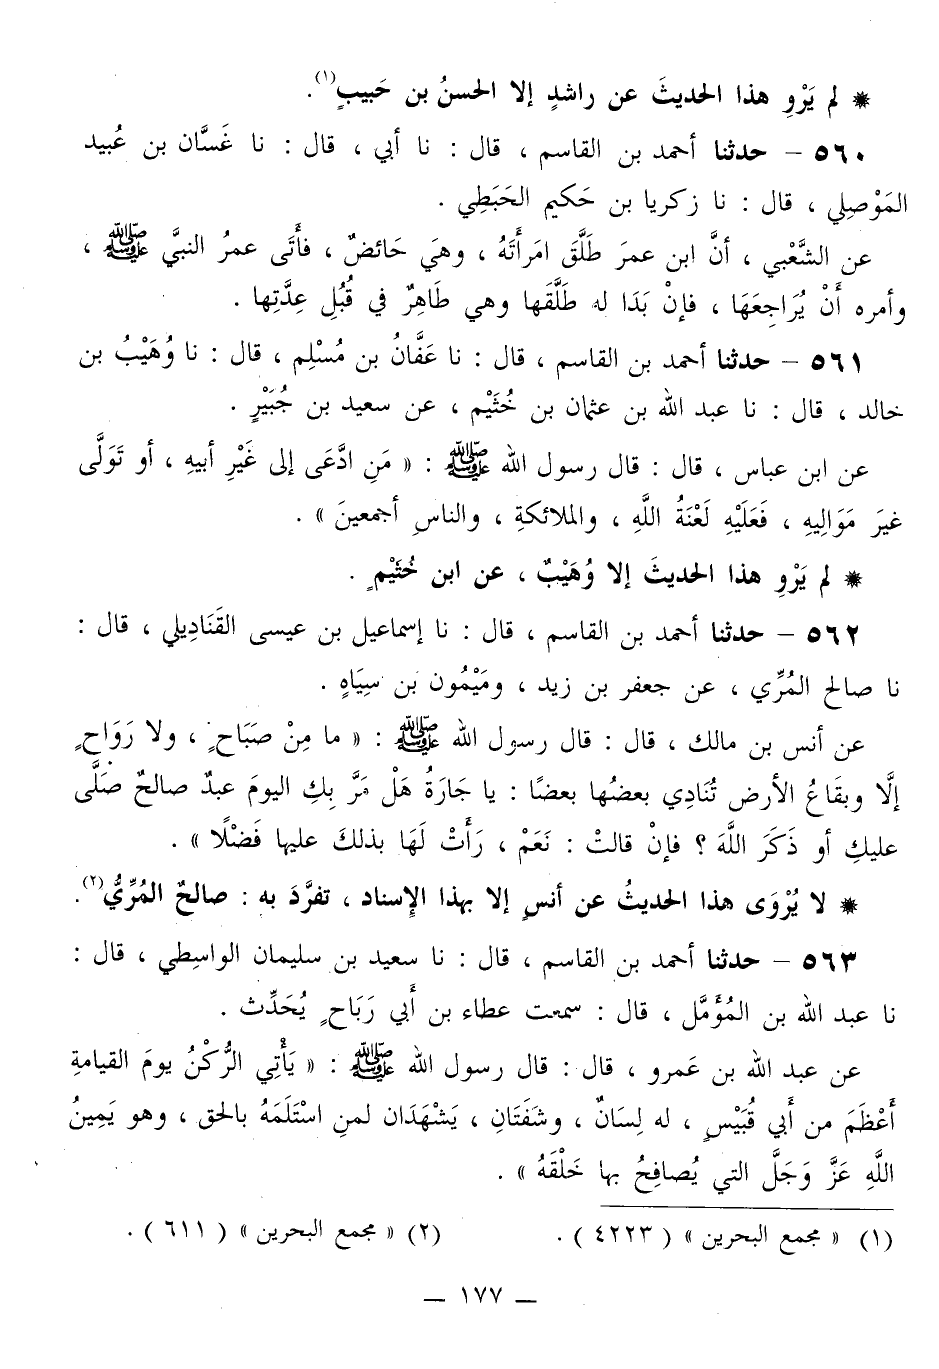 * لم يَرْوِ هذا الحديثَ عن راشدٍ إلا الحسنُ بن حَبيبٍ(١).
٥٦٠ – حدثنا أحمد بن القاسم ، قال : نا أبي ، قال : نا غَسَّان بن عُبيد
المَوْصِلي ، قال : نا زكريا بن حَكيم الحَبَطِي .
عن الشَّعْبي ، أنَّ ابن عمرَ طَلَّقَ امَرأَتَهُ ، وهيَ حَائضٌ ، فأَتَى عمرُ النبيَّ ﷺ ،
وأمره أَنْ يُرَاجِعَهَا ، فإنْ بَدَا له طَلَّقَها وهي طَاهِرٌ في قُبُلِ عِدَّتِها .
٥٦١ – حدثنا أحمد بن القاسم ، قال : نا عَفَّانُ بن مُسْلِم ، قال : نا وُهَيْبُ بن
خالد ، قال : نا عبد الله بن عثمان بن خُثَيْم ، عن سعيد بن جُبَيْرٍ .
عن ابن عباس ، قال : قال رسول الله ﷺ : « مَنِ ادَّعَى إلى غَيْرِ أبيهِ ، أو تَوَلَّى
غيرَ مَوَالِيهِ ، فَعَلَيْهِ لَعْنَةُ اللَّهِ ، والملائكةِ ، والناسِ أجمعينَ » .
* لم يَرْوِ هذا الحديثَ إلا وُهَيْبٌ ، عن ابن خُثَيْمٍ .
٥٦٢ – حدثنا أحمد بن القاسم ، قال : نا إسماعيل بن عيسى القَنَادِيلي ، قال :
نا صالح المُرِّي ، عن جعفر بن زيد ، ومَيْمُون بن سِيَاهٍ .
عن أنس بن مالك ، قال : قال رسول الله ﷺ : « ما مِنْ صَبَاحٍ ، ولا رَوَاحٍ
إلَّا وبِقَاعُ الأرض تُنَادِي بعضُها بعضًا : يا جَارَةُ هَلْ مَرَّ بِكِ اليومَ عبدٌ صالحٌ صَلَّى
عليكِ أو ذَكَرَ اللَّهَ ؟ فإنْ قالتْ : نَعَمْ ، رَأَتْ لَهَا بذلكَ عليها فَضْلًا » .
* لا يُرْوَى هذا الحديثُ عن أنسٍ إلا بهذا الإسناد ، تفرَّدَ به : صالحٌ المُرِّيُّ(٢).
٥٦٣ – حدثنا أحمد بن القاسم ، قال : نا سعيد بن سليمان الواسِطي ، قال :
نا عبد الله بن المُؤَمَّل ، قال : سمعت عطاء بن أَبي رَبَاحٍ يُحَدِّث .
عن عبد الله بن عَمرو ، قال : قال رسول الله ﷺ : « يَأْتِي الرُّكْنُ يومَ القيامةِ
أَعْظَمَ من أبي قُبَيْسٍ ، له لِسَانٌ ، وشَفَتَانِ ، يَشْهَدَان لمنِ اسْتَلَمَهُ بالحق ، وهو يَمِينُ
اللَّهِ عَزَّ وَجَلَّ التي يُصافِحُ بها خَلْقَهُ » .
(١) « مجمع البحرين » ( ٤٢٢٣ ) .
(٢) « مجمع البحرين » ( ٦١١ ) .
– ١٧٧ –